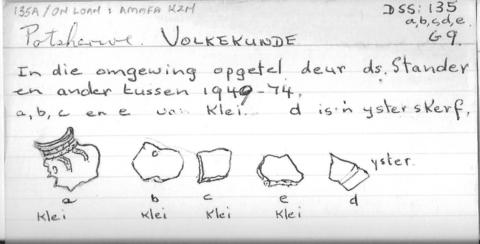 135A/ON LOAN: AMAFA KZN
DSS:135
a,b,c,d,e.
G9.
Potsherwe. VOLKEKUNDE
In die omgewing opgetel deur ds. Stander
en ander tussen 1949-74.
a, b, c en e van Klei. d is 'n ysterskerf,
yster.
a b c e d
Klei Klei Klei Klei